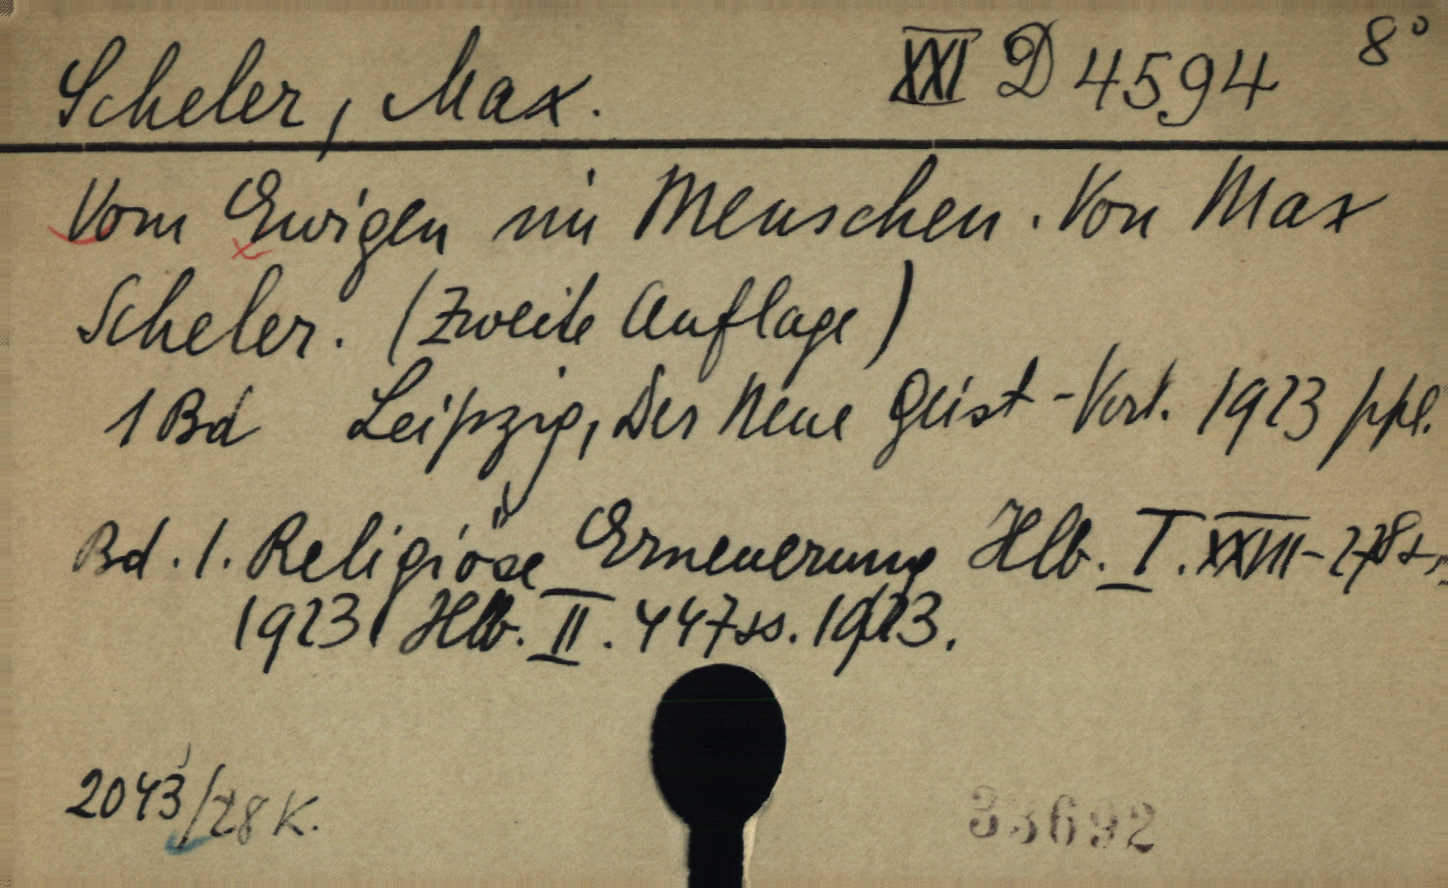 Scheler, Max. XXI D 4594 8°
Vom Ewigen im Menschen. Von Max
Scheler. (Zweite Auflage)
1 Bd Leipzig, Der Neue Geist-Verl. 1923 ppl.
Bd. 1. Religiöse Erneuerung Hlb. I. XXVIII-278 s
1923 Hlb. II. 447 ss. 1923.
2043/28 K.
33692